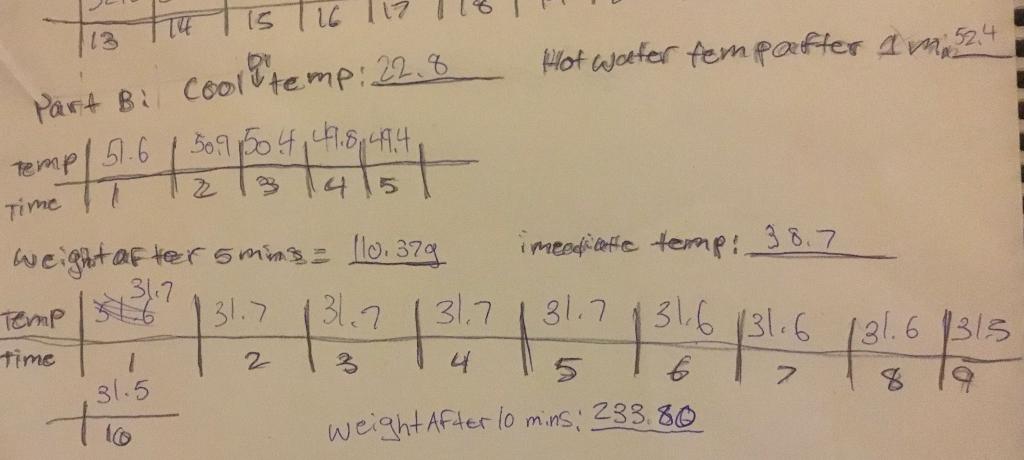 13 14 15 16 17 18
Part B: Cool temp: 22.8
Hot water temp after 1 min 52.4
Temp 51.6 50.9 50.4 49.8 49.4
Time 1 2 3 4 5
weight after 5 mins = 110.37g
imeediatte temp: 38.7
Temp 31.7 31.7 31.7 31.7 31.7 31.6 31.6 31.6 31.5
time 1 2 3 4 5 6 7 8 9
31.5
10
weight After 10 mins: 233.80